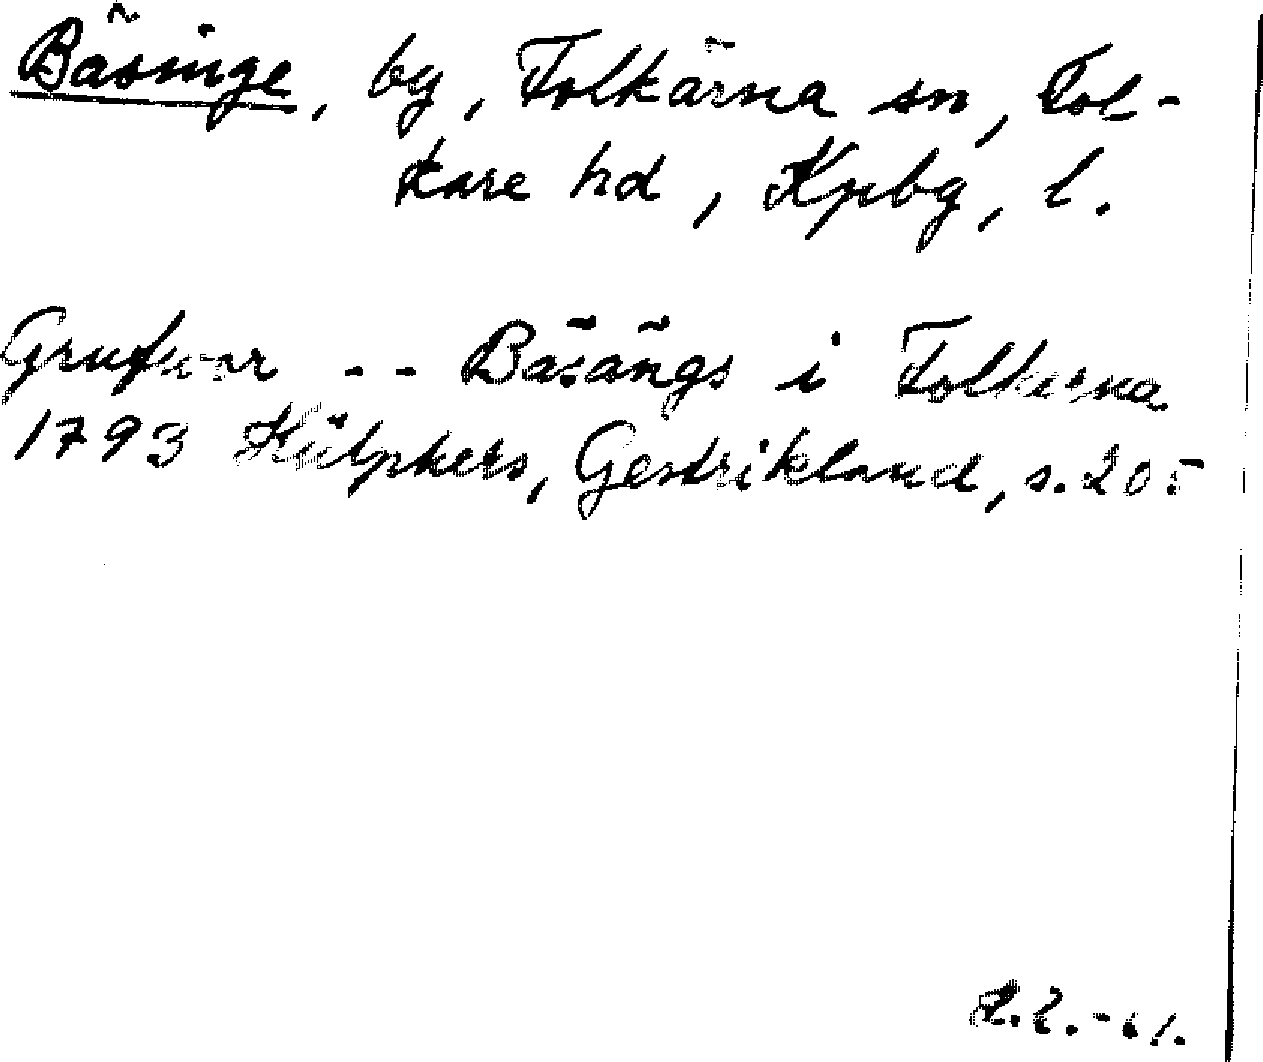 Bäsinge, by, Folkärna sn, Fol-
kare hd, Kpbg, l.
Grufwor -- Bäsängs i Folkerna
1793 Hülphers, Gestrikland, s. 205